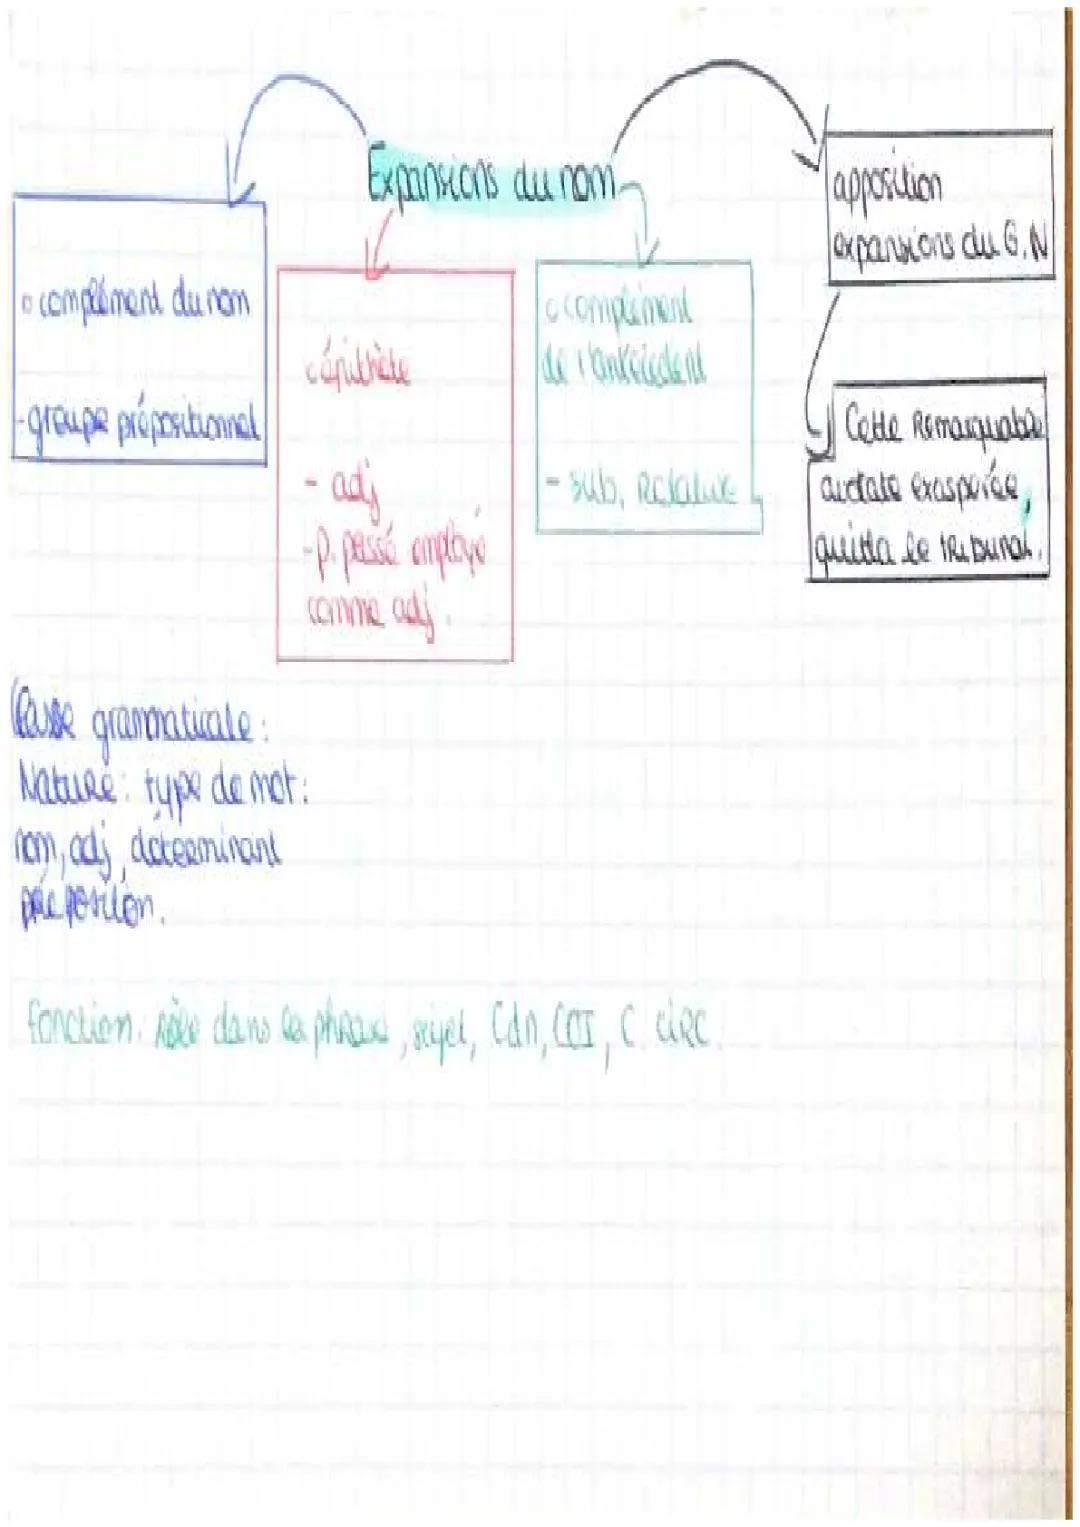 Expansions du nom
o complément du nom
- groupe prépositionnel
o épithète
- adj
- p. passé employé
comme adj.
o complément
de l'antécédent
- sub. Relative
apposition
expansions du G.N
Cette Remarquable
avocate exaspérée,
quitta le tribunal.
Classe grammaticale :
Nature : type de mot :
nom, adj, déterminant
préposition.
fonction : rôle dans la phrase, sujet, Cdn, COI, C. CIRC.